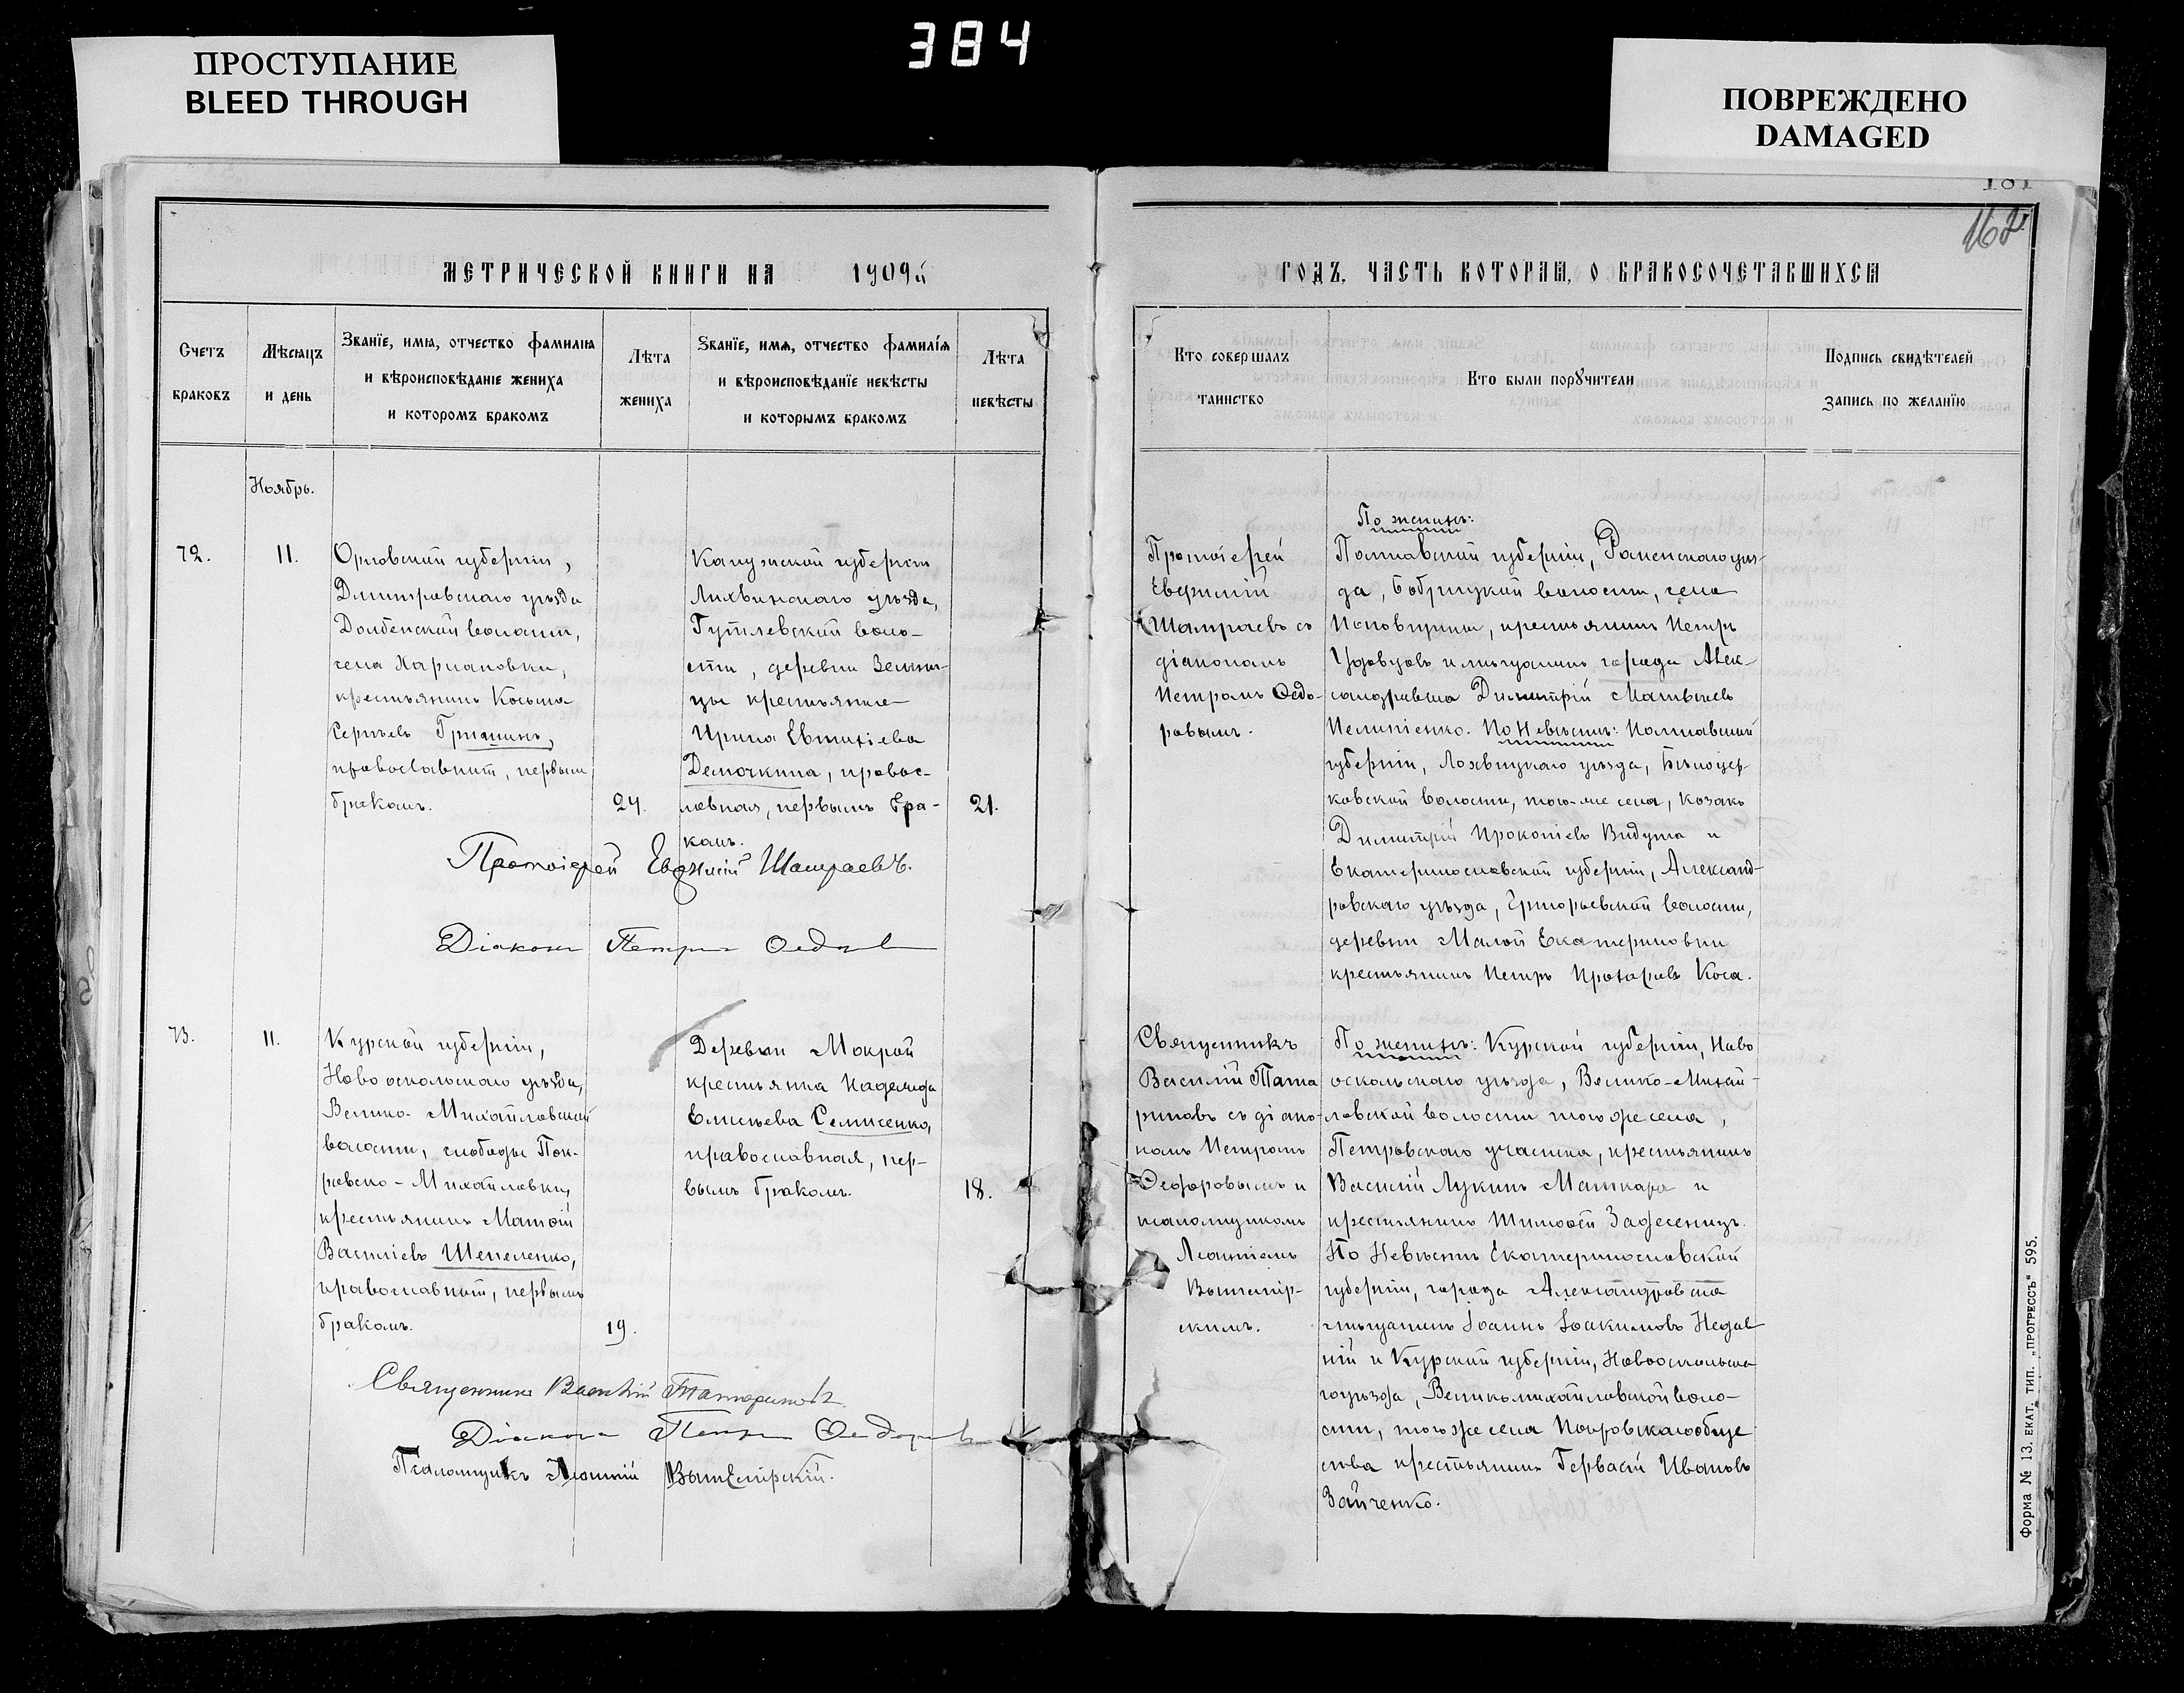 ПРОСТУПАНИЕ
BLEED THROUGH
384
ПОВРЕЖДЕНО
DAMAGED
181
162
МЕТРИЧЕСКОЙ КНИГИ НА 1909й
ГОДЪ, ЧАСТЬ ВТОРАЯ, О БРАКОСОЧЕТАВШИХСЯ
Счетъ
браковъ
Мѣсяцъ
и день
Званїе, имя, отчество фамилїя
и вѣроисповѣданїе жениха
и которомъ бракомъ
Лѣта
жениха
Званїе, имя, отчество фамилїя
и вѣроисповѣданїе невѣсты
и которымъ бракомъ
Лѣта
невѣсты
Кто совершалъ
таинство
Кто были порꙋчители
Подпись свидѣтелей
запись по желанїю
Ноябрь.
72.
11.
Орловской губернiи,
Дмитровскаго уѣзда
Долбенской волости,
села
крестьянинъ Косьма
Сергѣевъ Гришинъ,
православный, первымъ
бракомъ.
24.
Калужской губернiи
Лихвинскаго уѣзда,
волости, деревни
крестьянка
Ирина Евтихiева
Демочкина, правос-
лавная, первымъ бра-
комъ.
21.
Протоiерей Евфимiй Шамраевъ.
Дiаконъ Петръ Ѳедоровъ
Протоiерей
Евфимiй
Шамраевъ съ
дiакономъ
Петромъ Ѳедо-
ровымъ.
По женихѣ:
Полтавской губернiи, Роменскаго уѣз-
да, Бобрицкой волости, села
Поповщины, крестьянинъ Петръ
Удовцовъ и мѣщанинъ города Алек-
сандровска Димитрiй Матвѣевъ
Пелипенко. По Невѣстѣ: Полтавской
губернiи, Лохвицкаго уѣзда, Бѣлоцер-
ковской волости, того-же села, козакъ
Димитрiй Прокопiевъ Видута и
Екатеринославской губернiи, Александ-
ровскаго уѣзда, Григорьевской волости,
деревни Малой Екатериновки
крестьянинъ Петръ Прохоровъ Коса.
73.
11.
Курской губернiи,
Ново оскольскаго уѣзда,
Велико-Михайловской
волости, слободы Пок-
ровско-Михайловки,
крестьянинъ Матѳiй
Василiевъ Шепеленко,
православный, первымъ
бракомъ.
19.
Деревни Мокрой
крестьянка Надежда
Елисѣева Семисенко,
православная, пер-
вымъ бракомъ.
18.
Священникъ Василiй Татариновъ
Дiаконъ Петръ Ѳедоровъ
Псаломщикъ Леонтiй
Священникъ
Василiй Тата
риновъ съ дiако-
номъ Петромъ
Ѳедоровымъ и
псаломщикомъ
Леонтiемъ
По женихѣ: Курской губернiи, Ново
оскольскаго уѣзда, Велико-Михай-
ловской волости того же села,
Петровскаго участка, крестьянинъ
Василiй Лукинъ Машкара и
крестьянинъ Тимоѳей
По Невѣстѣ Екатеринославской
губернiи, города Александровска
мѣщанинъ Iоаннъ Iоакимовъ
и Курской губернiи, Новооскольска
го уѣзда, Великомихайловской воло-
сти, того же села Покровскаго обще
ства крестьянинъ Гервасiй Ивановъ
Зайченко.
Форма № 13. ЕКАТ. ТИП. „ПРОГРЕССЪ“ 595.